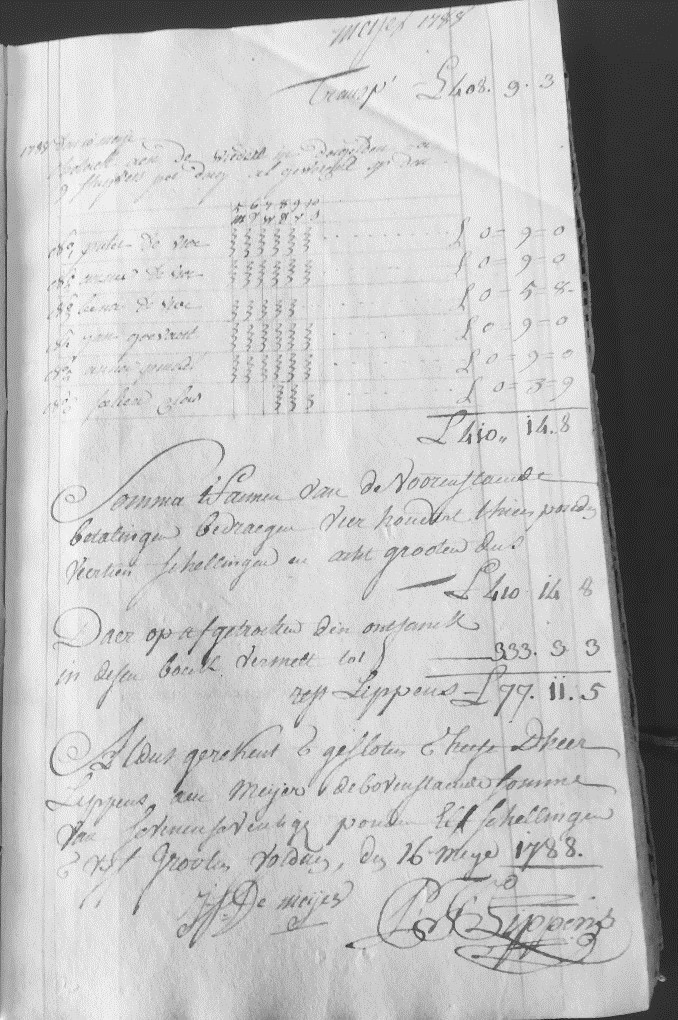 meije 1788
Transp^t £408. 9. 3
1788 Den meije
9 stuyvers per dag
5 6 7 8 9 10
pieter de vos £ 0=9=0
de vos £ 0=9=0
de vos £ 0=5=8
van £ 0=9=0
anna £ 0=9=0
£ 0=3=9
£410„ 14.8
Somma t'samen van de Voorenstaende
betalingen bedraegen vier hondert thien ponden
veertien schellingen en acht grooten dus
£410 14 8
Daer op afgetrocken den ontfanck
in desen boeck vermelt tot 333. 3 3
rest Lippens £77. 11. 5
Aldus gerekent & gesloten & heeft d'heer
Lippens aen Meijer de bovenstaende somme
van sevenenseventig ponden elf schellingen
& vijf Grooten voldaen, den 16 meye 1788.
De meijer Lippens